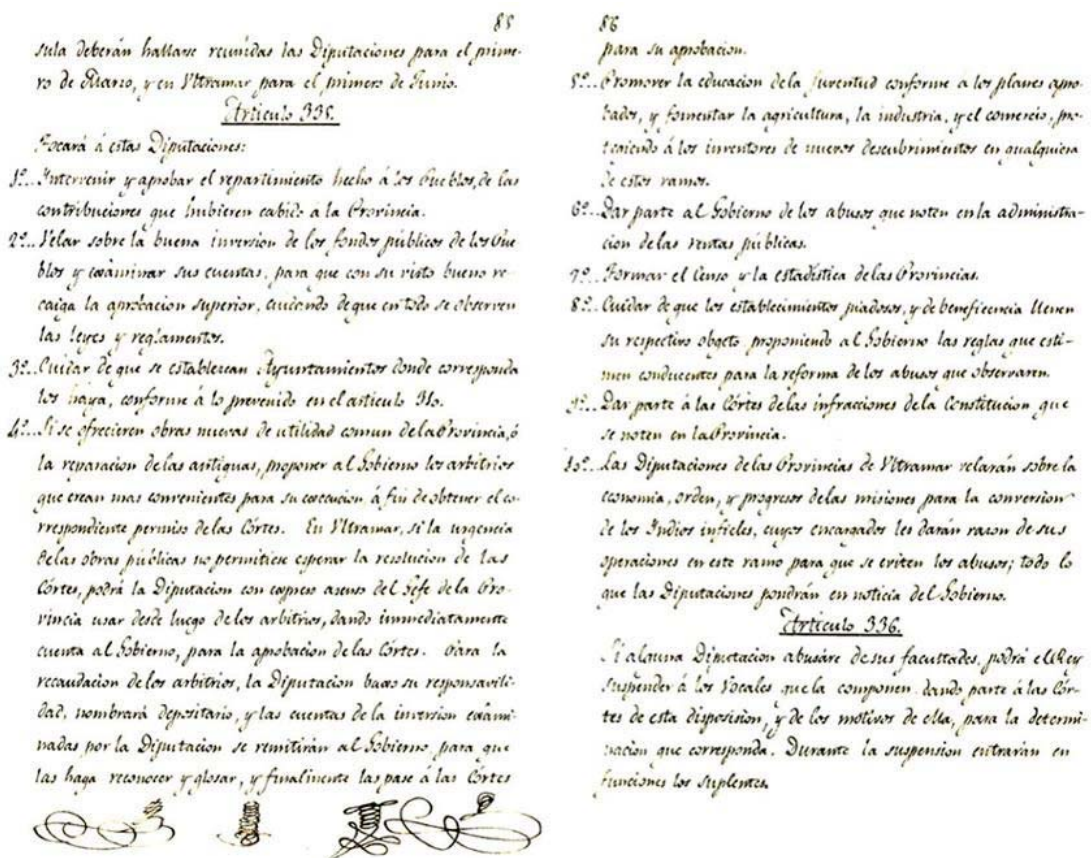 85
sula deberán hallarse reunidas las Diputaciones para el prime-
ro de Marzo, y en Vltramar para el primero de Junio.
Articulo 335.
Tocará á estas Diputaciones:
1º.. Intervenir y aprobar el repartimiento hecho á los Pueblos, de las
contribuciones que hubieren cabido á la Provincia.
2º.. Velar sobre la buena inversion de los fondos públicos de los Pue
blos y examinar sus cuentas, para que con su visto bueno re-
caiga la aprobacion superior, cuidando de que en todo se observen
las leyes y reglamentos.
3º.. Cuidar de que se establezcan Ayuntamientos donde corresponda
los haya, conforme á lo prevenido en el articulo 310.
4º.. Si se ofrecieren obras nuevas de utilidad comun de la Provincia, ó
la reparacion de las antiguas, proponer al Gobierno los arbitrios
que crean mas convenientes para su execucion á fin de obtener el co-
rrespondiente permiso de las Córtes. En Vltramar, si la urgencia
de las obras públicas no permitiese esperar la resolucion de las
Córtes, podrá la Diputacion con expreso asenso del Gefe de la Pro-
vincia usar desde luego de los arbitrios, dando inmediatamente
cuenta al Gobierno, para la aprobacion de las Córtes. Para la
recaudacion de los arbitrios, la Diputacion baxo su responsavili-
dad, nombrará depositario, y las cuentas de la inversion exâmi-
nadas por la Diputacion se remitirán al Gobierno, para que
las haga reconocer y glosar, y finalmente las pase á las Córtes
86
para su aprobacion.
5º.. Promover la educacion de la juventud conforme a los planes apro-
bados, y fomentar la agricultura, la industria, y el comercio, pro-
tegiendo á los inventores de nuevos descubrimientos en qualquiera
de estos ramos.
6º.. Dar parte al Gobierno de los abusos que noten en la administra-
cion de las rentas públicas.
7º.. Formar el Censo y la estadistica de las Provincias.
8º.. Cuidar de que los establecimientos piadosos, y de beneficencia llenen
su respectivo objeto, proponiendo al Gobierno las reglas que esti-
men conducentes para la reforma de los abusos que observaren.
9º.. Dar parte á las Córtes de las infracciones de la Constitucion que
se noten en la Provincia.
10º.. Las Diputaciones de las Provincias de Vltramar velarán sobre la
economia, orden, y progresos de las misiones para la conversion
de los Indios infieles, cuyos encargados les darán razon de sus
operaciones en este ramo para que se eviten los abusos; todo lo
que las Diputaciones pondrán en noticia del Gobierno.
Articulo 336.
Si alguna Diputacion abusáre de sus facultades, podrá el Rey
suspender á los Vocales que la componen, dando parte á las Cór-
tes de esta disposision, y de los motivos de ella, para la determi-
nacion que corresponda. Durante la suspension entrarán en
funciones los suplentes.